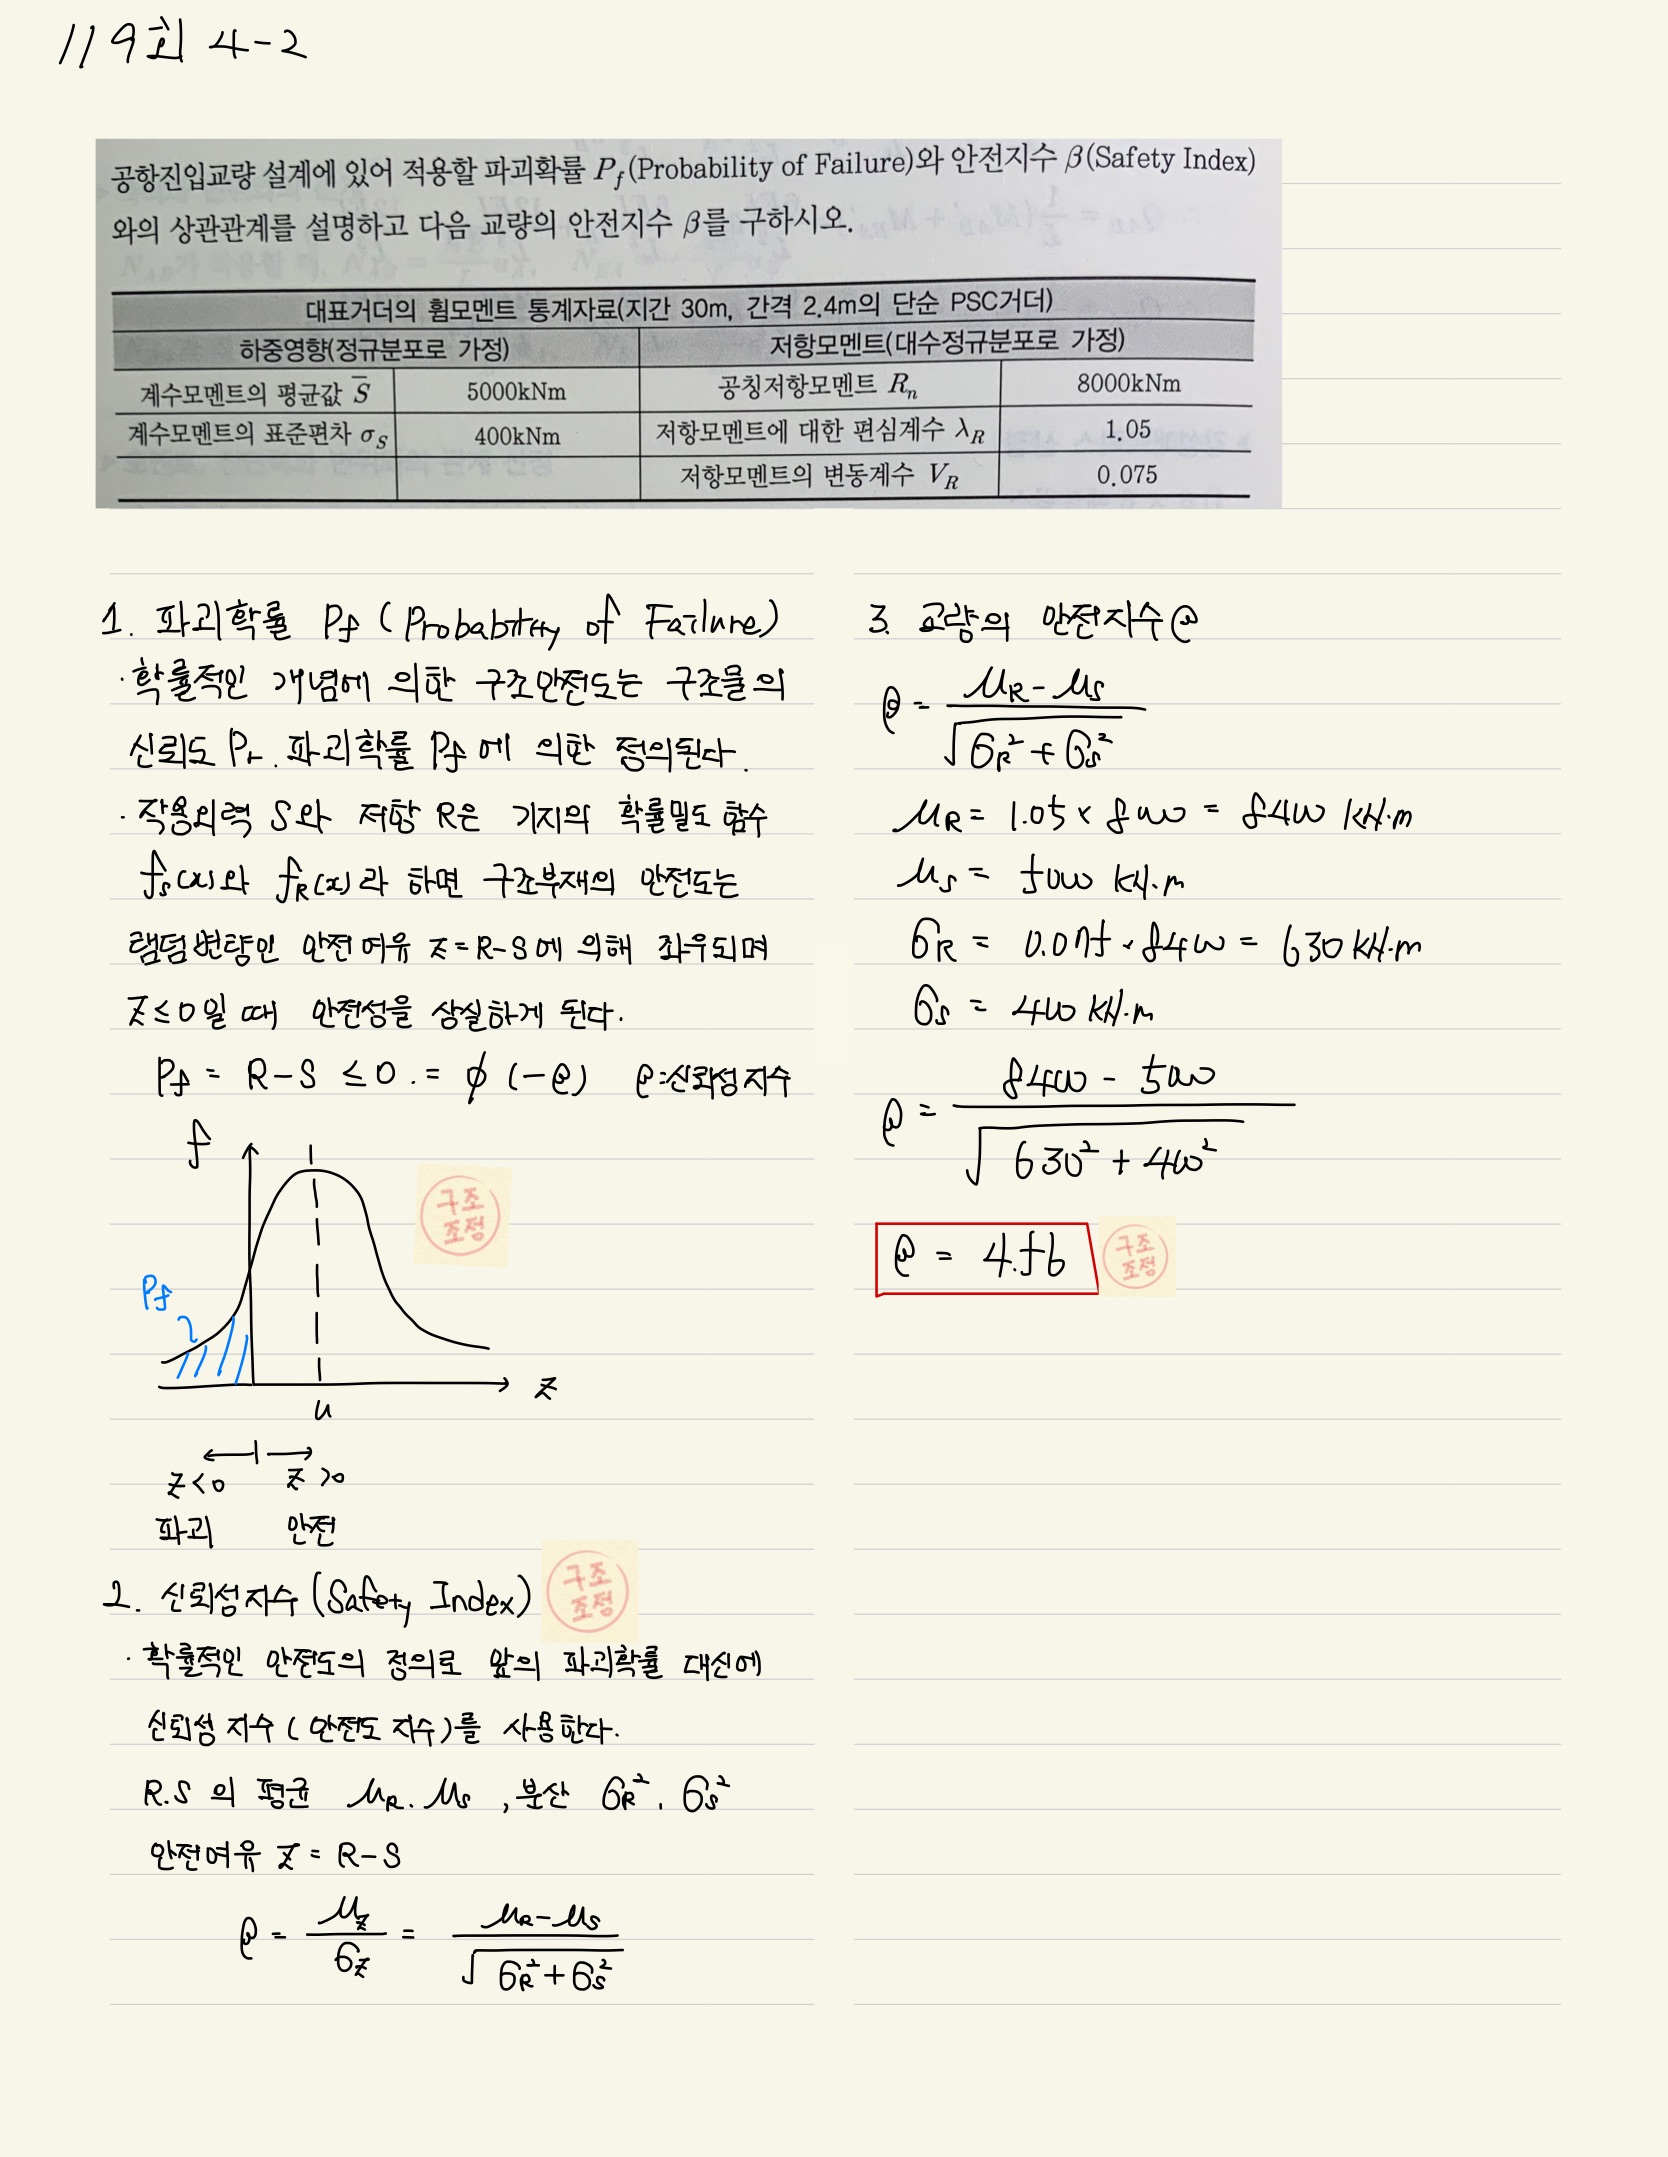 119회 4-2
공항진입교량 설계에 있어 적용할 파괴확률 P_f(Probability of Failure)와 안전지수 β(Safety Index)
와의 상관관계를 설명하고 다음 교량의 안전지수 β를 구하시오.
대표거더의 휨모멘트 통계자료(지간 30m, 간격 2.4m의 단순 PSC거더)
하중영향(정규분포로 가정) 저항모멘트(대수정규분포로 가정)
계수모멘트의 평균값 S̅ 5000kNm 공칭저항모멘트 R_n 8000kNm
계수모멘트의 표준편차 σ_S 400kNm 저항모멘트에 대한 편심계수 λ_R 1.05
저항모멘트의 변동계수 V_R 0.075
1. 파괴확률 Pf (Probability of Failure)
· 확률적인 개념에 의한 구조안전도는 구조물의
신뢰도 Pr. 파괴확률 Pf에 의한 정의된다.
· 작용외력 S와 저항 R은 기지의 확률밀도 함수
f_S(x)와 f_R(x)라 하면 구조부재의 안전도는
램덤변량인 안전여유 Z=R-S에 의해 좌우되며
Z≤0일 때 안전성을 상실하게 된다.
Pf = R-S ≤ 0. = φ(-β) β:신뢰성지수
f
구조
조정
Pf
Z
u
Z<0 Z>0
파괴 안전
2. 신뢰성지수 (Safety Index)
구조
조정
· 확률적인 안전도의 정의로 앞의 파괴확률 대신에
신뢰성 지수 (안전도 지수)를 사용한다.
R.S의 평균 μ_R. μ_S, 분산 σ_R². σ_S²
안전여유 Z = R-S
β = μ_Z / σ_Z = (μ_R-μ_S) / √(σ_R²+σ_S²)
3. 교량의 안전지수 β
β = (μ_R-μ_S) / √(σ_R²+σ_S²)
μ_R = 1.05 × 8000 = 8400 kN·m
μ_S = 5000 kN·m
σ_R = 0.075 × 8400 = 630 kN·m
σ_S = 400 kN·m
β = (8400 - 5000) / √(630² + 400²)
β = 4.56
구조
조정